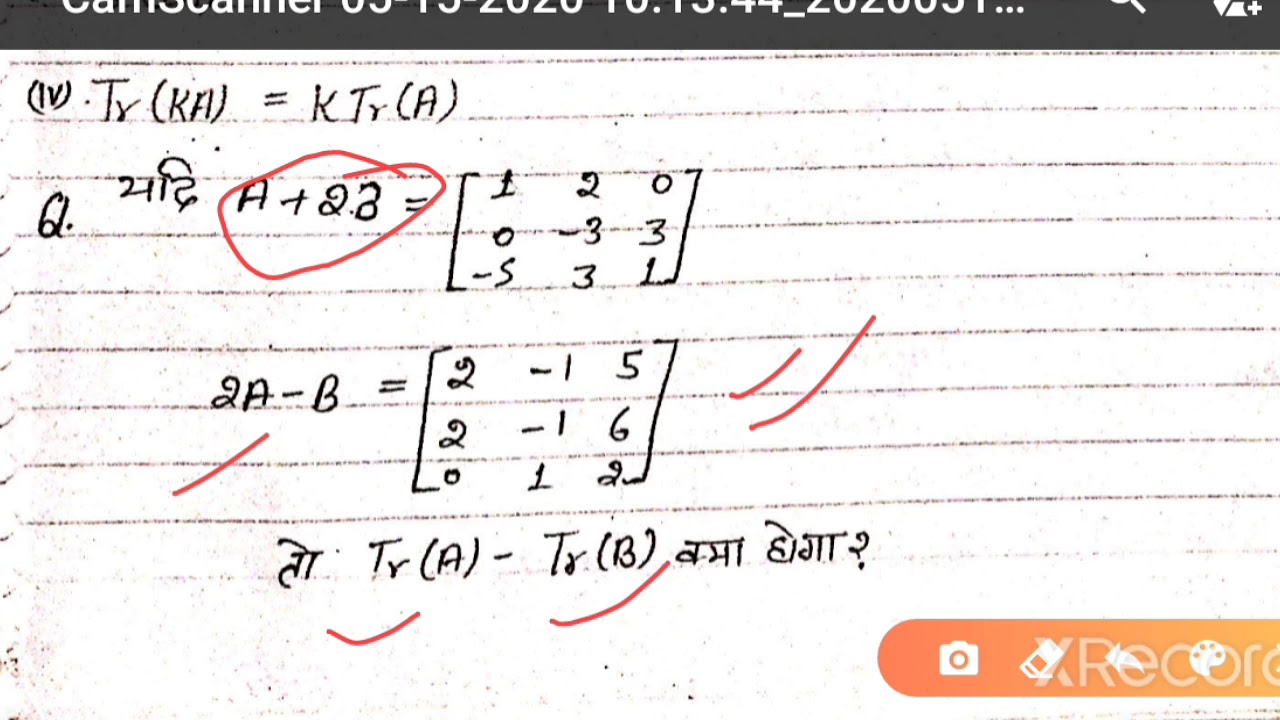 CamScanner 05-15-2020 10.13.44_2020051...
(iv). Tr (KA) = K Tr (A)
Q. यदि A + 2B = [1 2 0
0 -3 3
-5 3 1]
2A - B = [2 -1 5
2 -1 6
0 1 2]
तो Tr (A) - Tr (B) क्या होगा?
XRecor